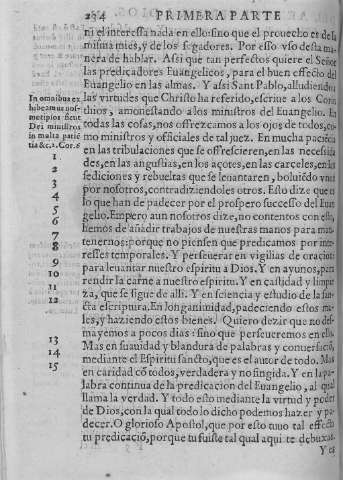 294 PRIMERA PARTE
ni el interessa nada en ello: sino que el prouecho es de la
misma mies, y de los segadores. Por esso vso desta ma
nera de hablar. Assi que tan perfectos quiere el Señor
las predicadores Euangelicos, para el buen effecto del
Euangelio en las almas. Y assi Sant Pablo, alludiendo a
las virtudes que Christo ha referido, escriue a los Corin
thios, amonestando a los ministros del Euangelio. En
todas las cosas, nos offrezcamos a los ojos de todos, co-
mo ministros y officiales de tal juez. En mucha paciécia
en las tribulaciones que se offrescieren, en las necessida
des, en las angustias, en los açotes, en las carceles, en las
sediciones y rebueltas que se leuantaren, boluiédo vnos
por nosotros, contradiziendoles otros. Esto dize que es
lo que han de padecer por el prospero successo del Euan
gelio. Empero aun nosotros dize, no contentos con ello,
hemos de añadir trabajos de nuestras manos para man
tenernos: porque no piensen que predicamos por inte-
resses temporales. Y perseuerar en vigilias de oracion
para leuantar nuestro espiritu a Dios. Y en ayunos, para
rendir la carne a nuestro espiritu. Y en castidad y limpie
za, que se sigue de alli. Y en sciencia y estudio de la san-
cta escriptura. En longanimidad, padeciendo estos ma-
les, y haziendo estos bienes. Quiero dezir que no des-
mayemos a pocos dias: sino que perseueremos en ello.
Mas en suauidad y blandura de palabras y conuersació,
mediante el Espiritu sancto, que es el autor de todo. Mas
en caridad có todos, verdadera y no fingida. Y en la pa-
labra continua de la predicacion del Euangelio, al qual
llama la verdad. Y todo esto mediante la virtud y poder
de Dios, con la qual todo lo dicho podemos hazer y pa-
decer. O glorioso Apostol, que por esto tuuo tal effecto
tu predicació, porque tu fuiste tal qual aqui te debuxas.
Y es
In omnibus ex
hibeamus nos
metipsos sicut
Dei ministros
in multa patiē
tia &c. 2. Cor. 6
1
2
3
4
5
6
7
8
9
10
11
12
13
14
15